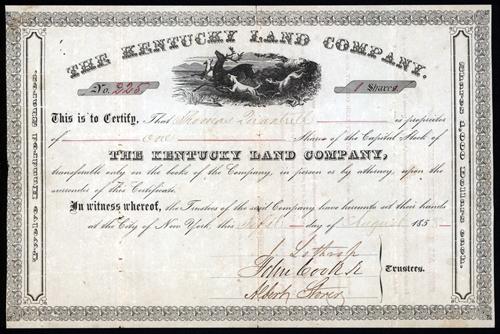 THE KENTUCKY LAND COMPANY.
No. 225
1 Shares.
This is to Certify, That Thomas is proprietor
of one Shares of the Capital Stock of
THE KENTUCKY LAND COMPANY,
transferable only on the books of the Company, in person or by attorney, upon the
surrender of this Certificate.
In witness whereof, the Trustees of the said Company have hereunto set their hands
at the City of New York, this day of August 185
J Lothrop
Trustees.
Albert Storer
Shares 1,000 Dollars each.